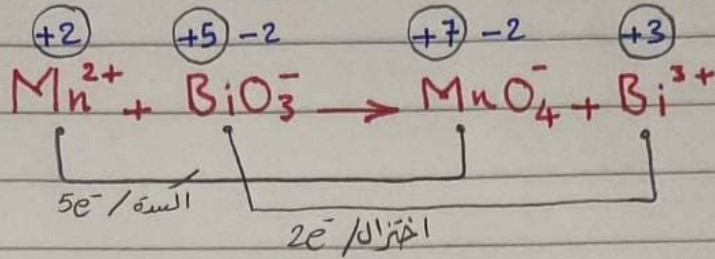 +2 +5 -2 +7 -2 +3
Mn²⁺ + BiO₃⁻ → MnO₄⁻ + Bi³⁺
5e⁻ / اكسدة
2e⁻ / اختزال